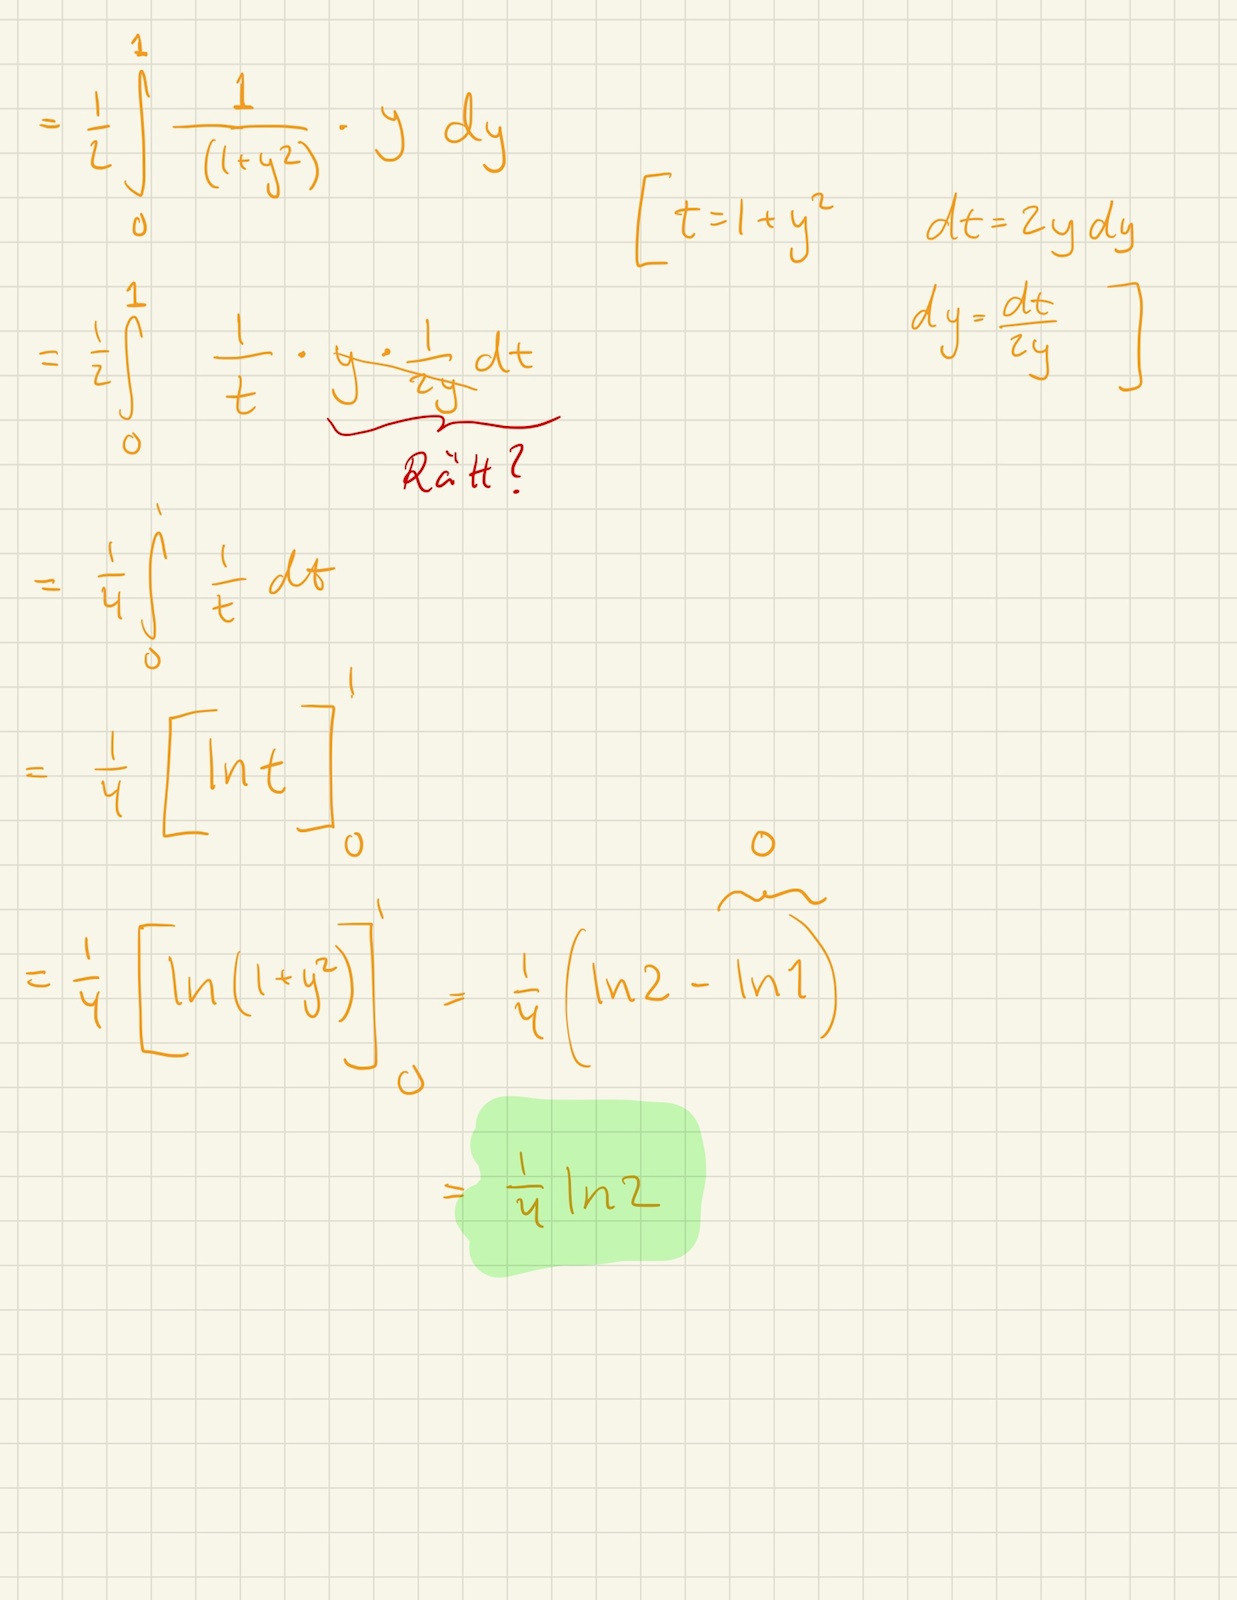 = 1/2 ∫₀¹ 1/(1+y²) · y dy
[ t = 1 + y²   dt = 2y dy
dy = dt/2y ]
= 1/2 ∫₀¹ 1/t · y · 1/2y dt
Rätt?
= 1/4 ∫₀¹ 1/t dt
= 1/4 [ ln t ]₀¹
0
= 1/4 [ ln(1+y²) ]₀¹ = 1/4 ( ln2 - ln1 )
= 1/4 ln2